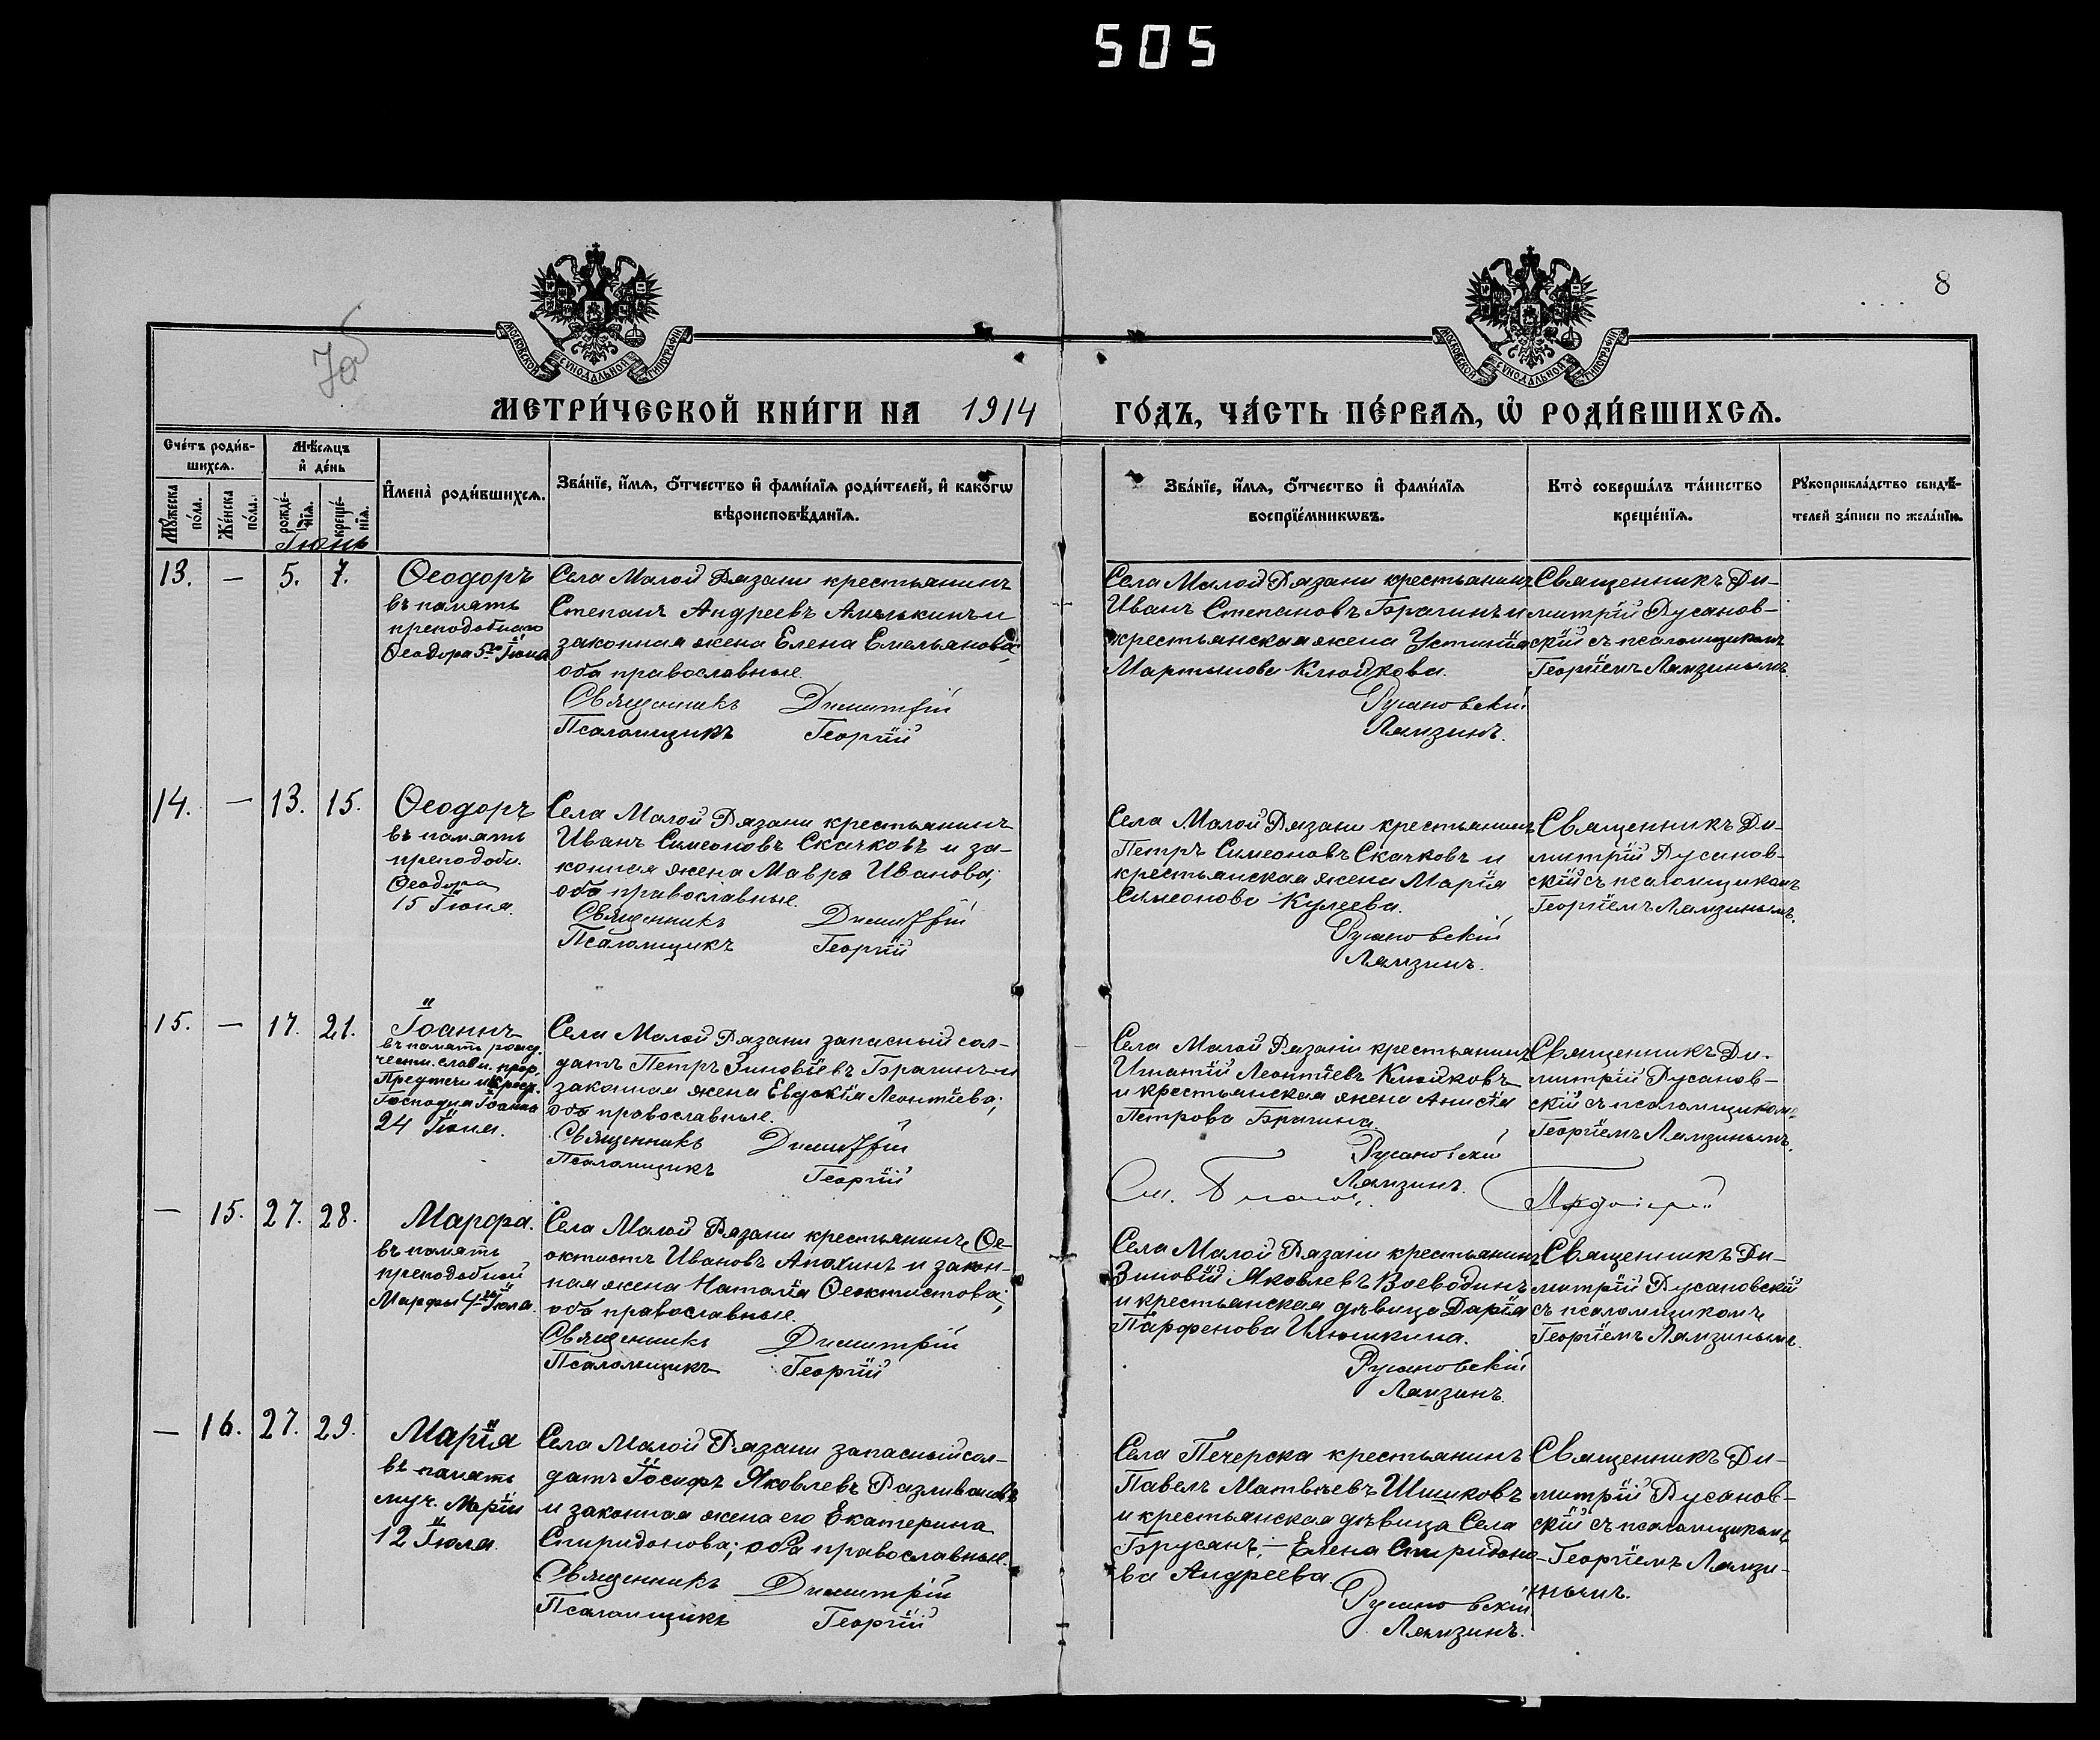 505
8
МОСКОВСКОЙ СѴНОДАЛЬНОЙ ТИПОГРАФІИ
МОСКОВСКОЙ СѴНОДАЛЬНОЙ ТИПОГРАФІИ
МЕТРИ́ЧЕСКОЙ КНИ́ГИ НА 1914 ГО́ДЪ, ЧА́СТЬ ПЕ́РВАѦ, Ѡ҆ РОДИ́ВШИХСѦ.
Сче́тъ роди́в-
шихсѧ.
Мѣ́сѧцъ
и҆ де́нь
Мꙋ́жеска по́ла.
Же́нска по́ла.
рожде́-нїѧ.
креще́-нїѧ.
И҆мена̀ роди́вшихсѧ.
Зва́нїе, и҆́мѧ, ѻ҆́тчество и҆ фами́лїѧ роди́телей, и҆ како́гѡ
вѣроисповѣ́данїѧ.
Зва́нїе, и҆́мѧ, ѻ҆́тчество и҆ фами́лїѧ
воспрїе́мникѡвъ.
Кто̀ соверша́лъ та́инство
креще́нїѧ.
Рꙋкоприкла́дство свидѣ́-
телей за́писи по жела́нїю.
Іюнь
13. — 5. 7.
Ѳеодоръ
въ память
преподобнаго
Ѳеодора 5го Іюня
Села Малой Рязани крестьянинъ
Степанъ Андреевъ Амелькинъ и
законная жена Елена Емельянова;
оба православные.
Священникъ Димитрій
Псаломщикъ Георгій
Села Малой Рязани крестьянинъ
Иванъ Степановъ Брагинъ и
крестьянская жена Устинія
Мартынова Клюйкова.
Русановскій
Лямзинъ.
Священникъ Ди-
митрій Русанов-
скій съ псаломщикомъ
Георгіемъ Лямзинымъ.
14. — 13. 15.
Ѳеодоръ
въ память
преподобн.
Ѳеодора
15 Іюня.
Села Малой Рязани крестьянинъ
Иванъ Симеоновъ Скачковъ и за-
конная жена Мавра Иванова;
оба православные.
Священникъ Димитрій
Псаломщикъ Георгій
Села Малой Рязани крестьянинъ
Петръ Симеоновъ Скачковъ и
крестьянская жена Марія
Симеонова Кулеева.
Русановскій
Лямзинъ.
Священникъ Ди-
митрій Русанов-
скій съ псаломщикомъ
Георгіемъ Лямзинымъ.
15. — 17. 21.
Іоаннъ
въ память рожд.
честн. славн. прор.
Предтечи и Крест.
Господня Іоанна
24 Іюня.
Села Малой Рязани запасный сол-
датъ Петръ Зиновіевъ Брагинъ и
законная жена Евдокія Леонтіева;
оба православные.
Священникъ Димитрій
Псаломщикъ Георгій
Села Малой Рязани крестьянинъ
Игнатій Леонтіевъ Клюйковъ
и крестьянская жена Анисія
Петрова Брагина.
Русановскій
Лямзинъ.
Священникъ Ди-
митрій Русанов-
скій съ псаломщикомъ
Георгіемъ Лямзинымъ.
— 15. 27. 28.
Марфа.
въ память
преподобной
Марфы 4го Іюля.
Села Малой Рязани крестьянинъ Ѳе-
октистъ Ивановъ Апохинъ и закон-
ная жена Наталія Ѳеоктистова;
оба православные.
Священникъ Димитрій
Псаломщикъ Георгій
Села Малой Рязани крестьянинъ
Зиновій Яковлевъ Воеводинъ
и крестьянская дѣвица Дарія
Парфенова Илюшкина.
Русановскій
Лямзинъ.
Священникъ Ди-
митрій Русановскій
съ псаломщикомъ
Георгіемъ Лямзинымъ.
— 16. 27. 29.
Марія
въ память
муч. Маріи
12 Іюля.
Села Малой Рязани запасный сол-
датъ Іосифъ Яковлевъ Разливановъ
и законная жена его Екатерина
Спиридонова; оба православные.
Священникъ Димитрій
Псаломщикъ Георгій
Села Печерска крестьянинъ
Павелъ Матвѣевъ Шишковъ
и крестьянская дѣвица Села
Брусанъ, — Елена Спиридоно-
ва Андреева
Русановскій
Лямзинъ.
Священникъ Ди-
митрій Русанов-
скій съ псаломщикомъ
Георгіемъ Лямзи-
нымъ.